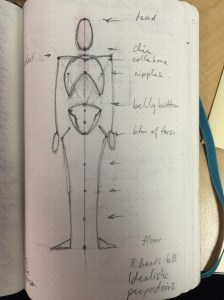 head
chin
collarbone
nipples
belly button
btm of torso
floor
8 heads tall
Idealistic
proportions